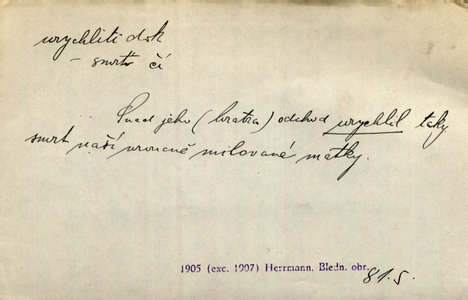 urychliti dok
– smrt čí
Snad jeho (bratra) odchod urychlil taky
smrt naší vroucně milované matky.
1905 (exc. 1907) Herrmann. Bledn. obr.
81.5.